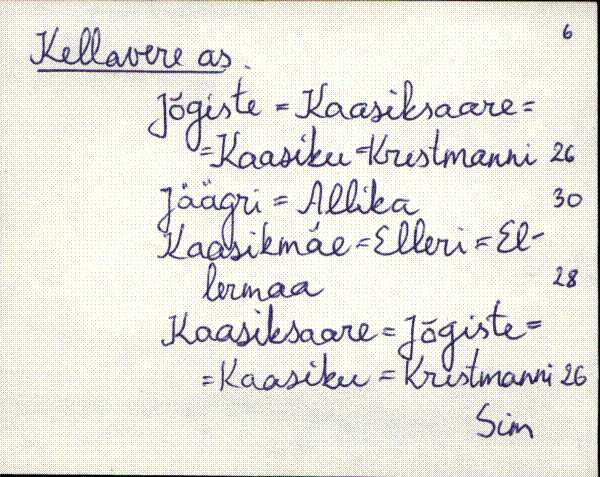 6
Kellavere as.
Jõgiste = Kaasiksaare =
= Kaasiku = Kristmanni 26
Jäägri = Allika 30
Kaasikmäe = Elleri = El-
lermaa 28
Kaasiksaare = Jõgiste =
= Kaasiku = Kristmanni 26
Sim